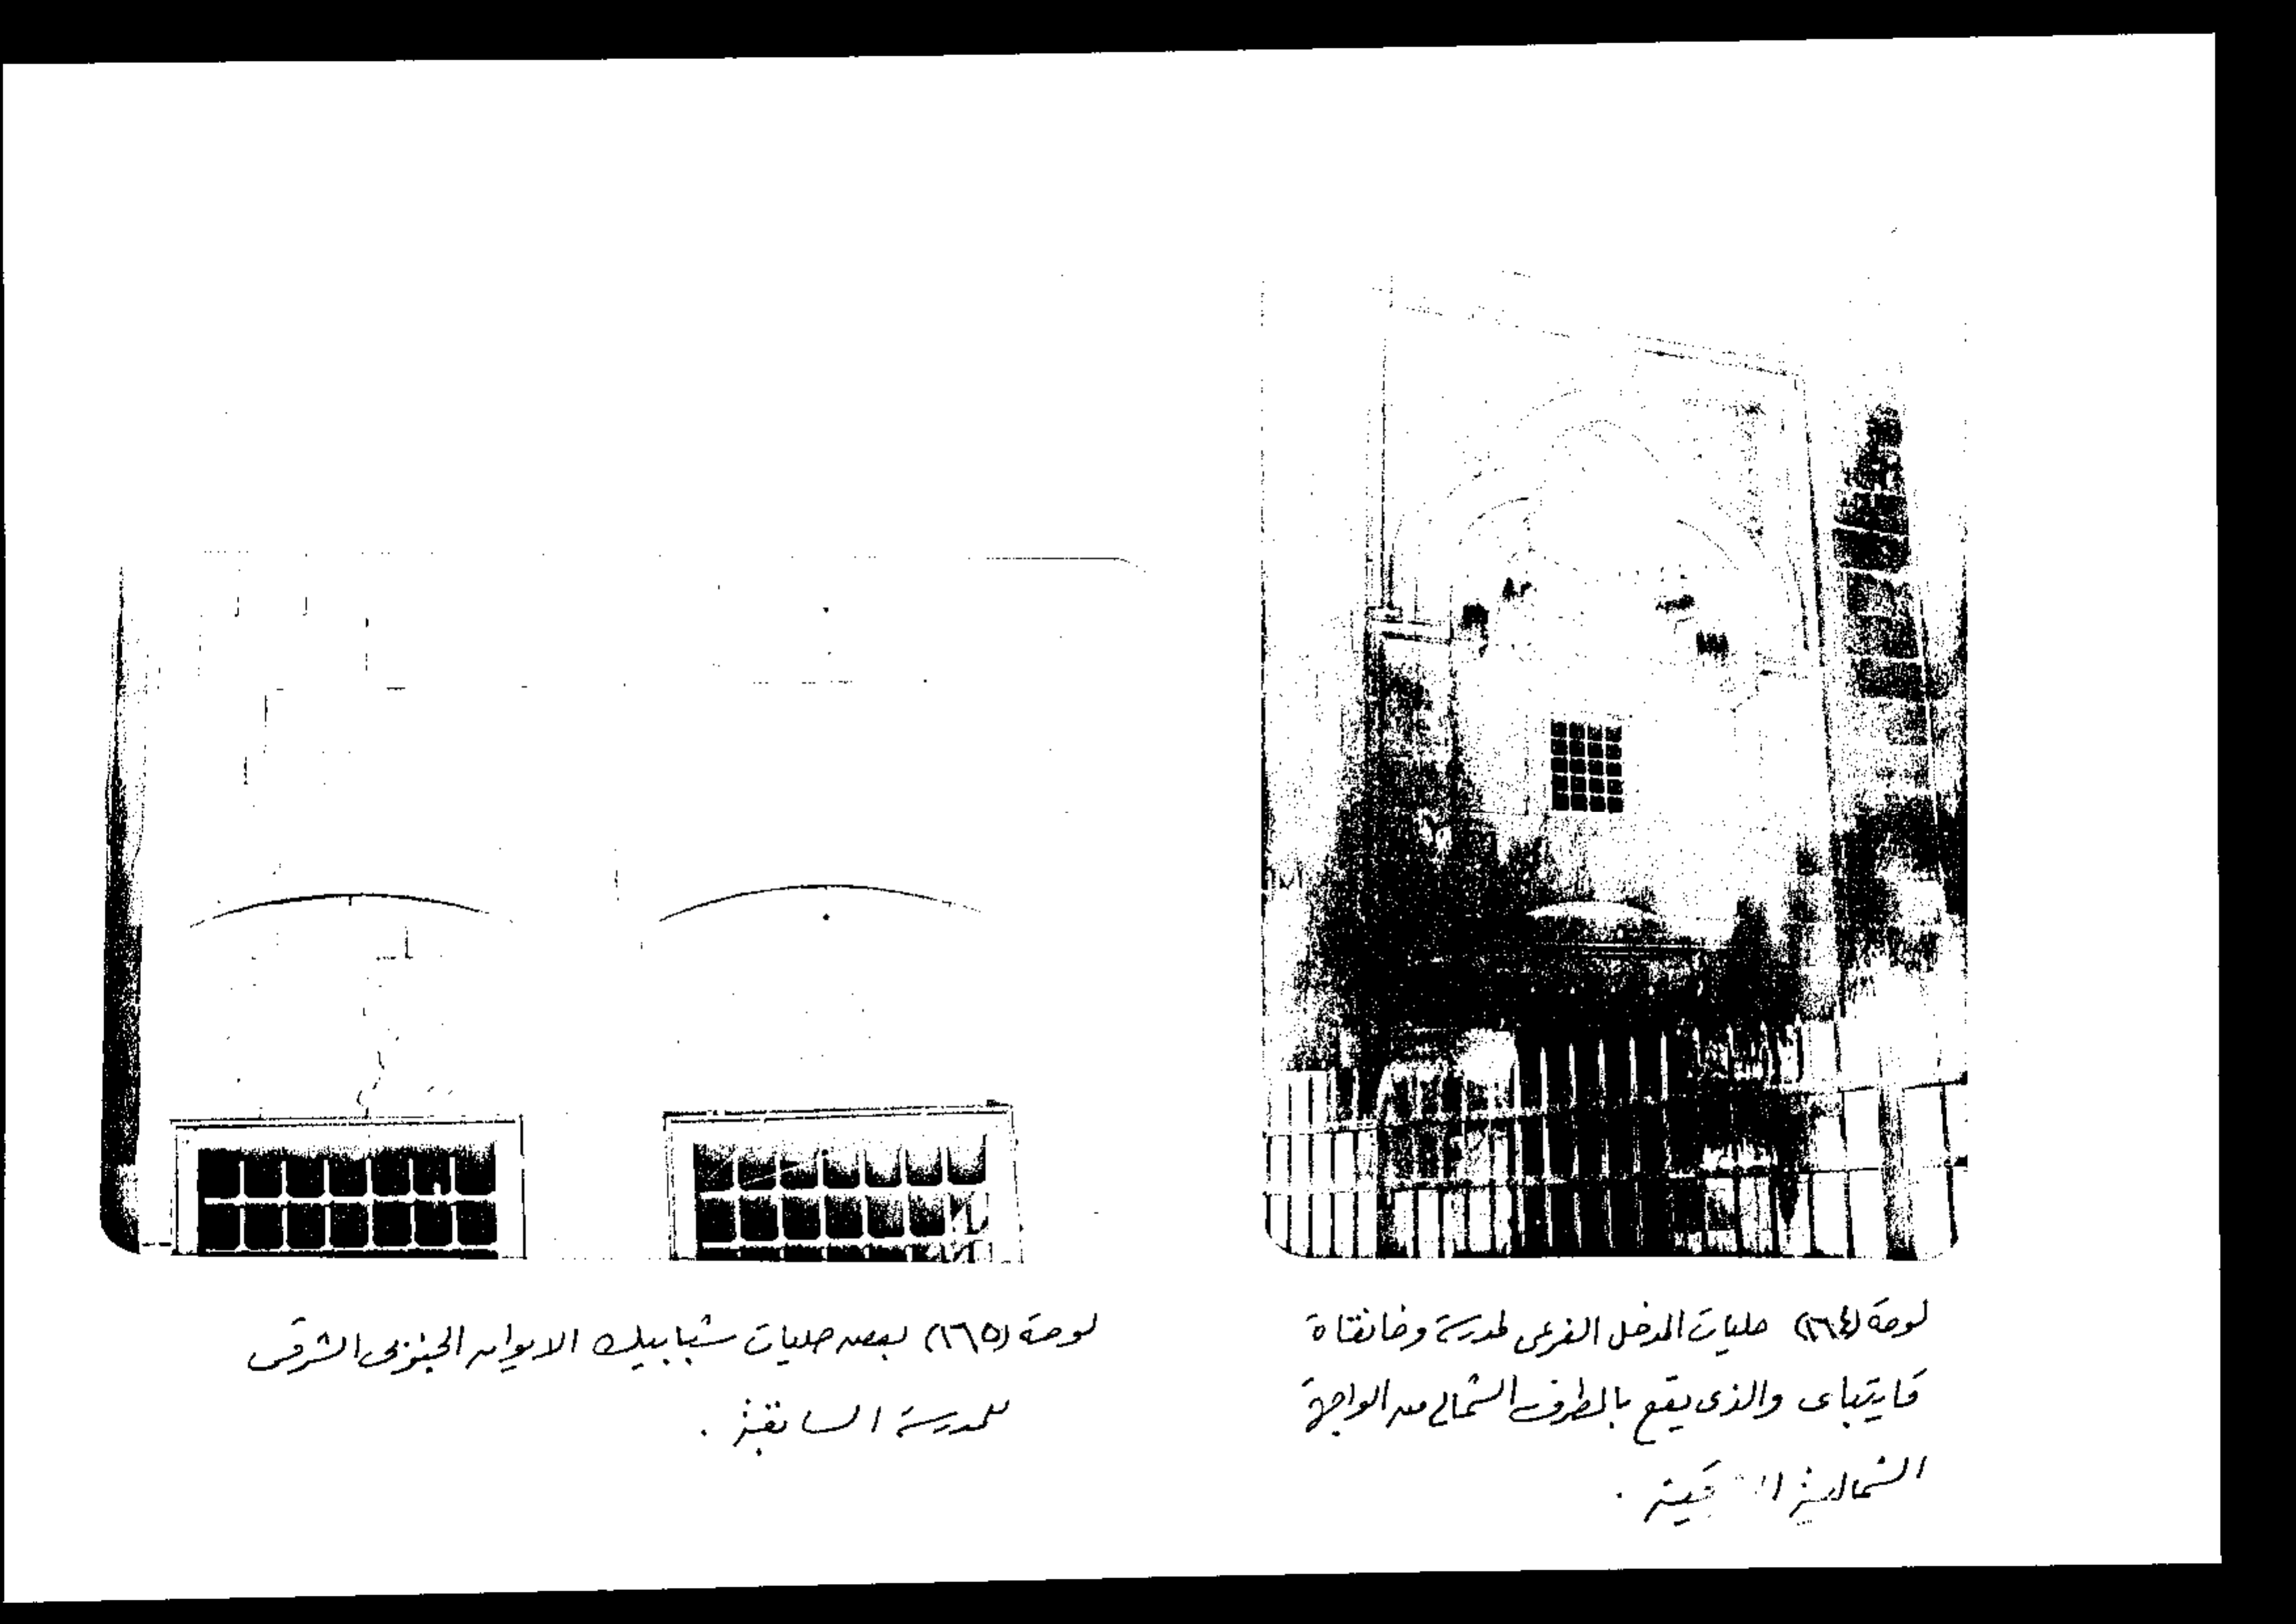 لوحة (١٦٤) حليات المدخل الفرعى لمدرسة وخانقاة
قايتباى والذى يقع بالطرف الشمالى من الواجهة
الشمالية
لوحة (١٦٥) بعض حليات شبابيك الايوان الجنوبى الشرقى
للمدرسة السابقة .